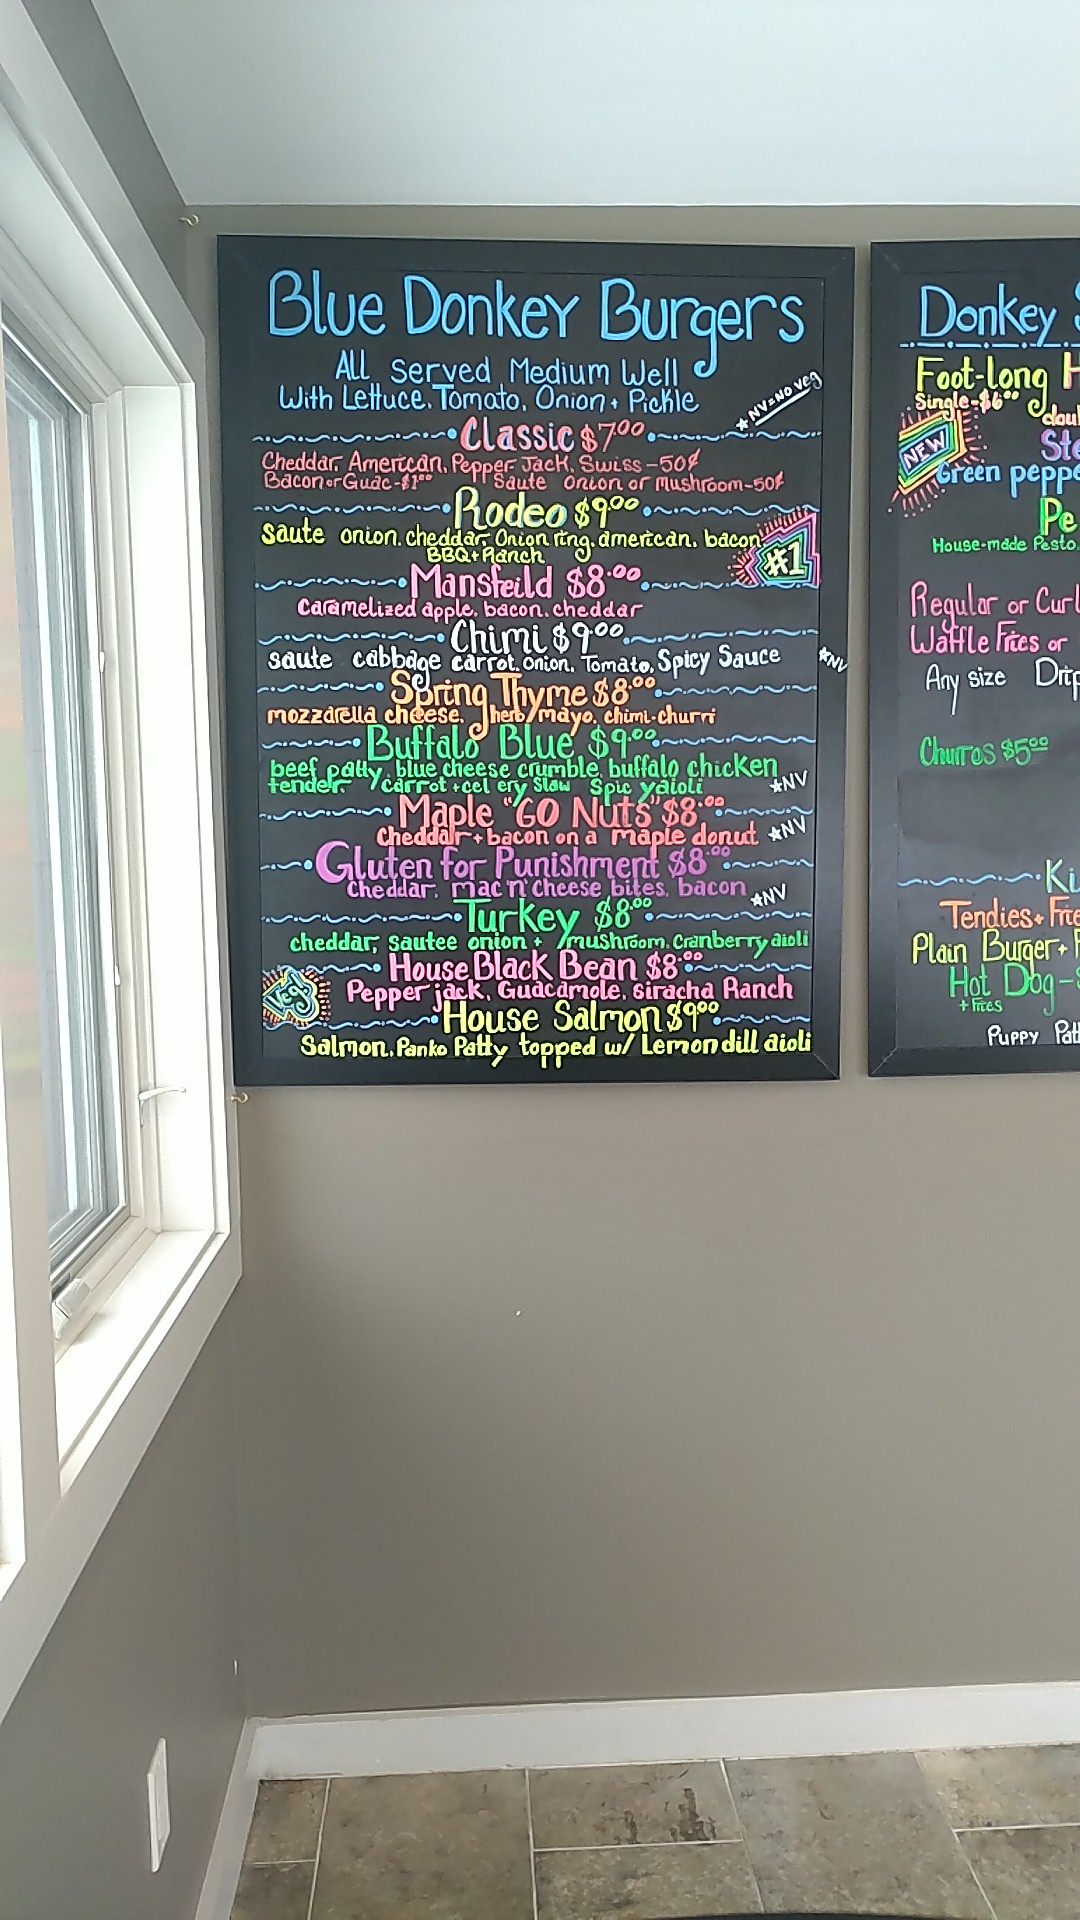 Blue Donkey Burgers
All Served Medium Well
With Lettuce, Tomato, Onion + Pickle
*NV=No veg
Classic $7.00
Cheddar, American, Pepper Jack, Swiss -50¢
Bacon or Guac-$1.00 Saute Onion or mushroom-50¢
Rodeo $9.00
saute onion, cheddar, Onion ring, american, bacon
BBQ + Ranch
#1
Mansfeild $8.00
Caramelized apple, bacon, cheddar
Chimi $9.00
saute cabbage carrot, onion, Tomato, Spicy Sauce
*NV
Spring Thyme $8.00
mozzarella cheese, herb mayo, chimi-churri
Buffalo Blue $9.00
beef patty, blue cheese crumble, buffalo chicken
tender, carrot + cel ery Slaw Spic y aioli
*NV
Maple "GO Nuts" $8.00
cheddar + bacon on a maple donut
*NV
Gluten for Punishment $8.00
cheddar, mac'n'cheese bites, bacon
*NV
Turkey $8.00
cheddar, sautee onion + mushroom, Cranberry aioli
House Black Bean $8.00
Veg!
Pepper jack, Guacamole, siracha Ranch
House Salmon $9.00
Salmon, Panko Patty topped w/ Lemon dill aioli
Donkey
Foot-long H
Single-$6.00
dou
NEW
Ste
Green peppe
Pe
House-made Pesto,
Regular or Curl
Waffle Fries or
Any size Drip
Churros $5.00
Ki
Tendies + Frie
Plain Burger + F
Hot Dog-
+ Fries
Puppy Patt